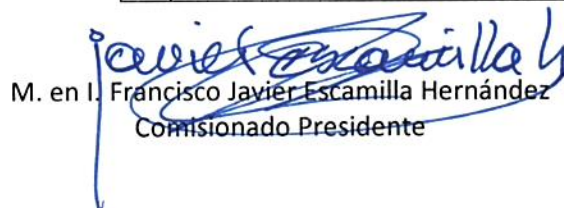 Javier Escamilla H
M. en I. Francisco Javier Escamilla Hernández
Comisionado Presidente